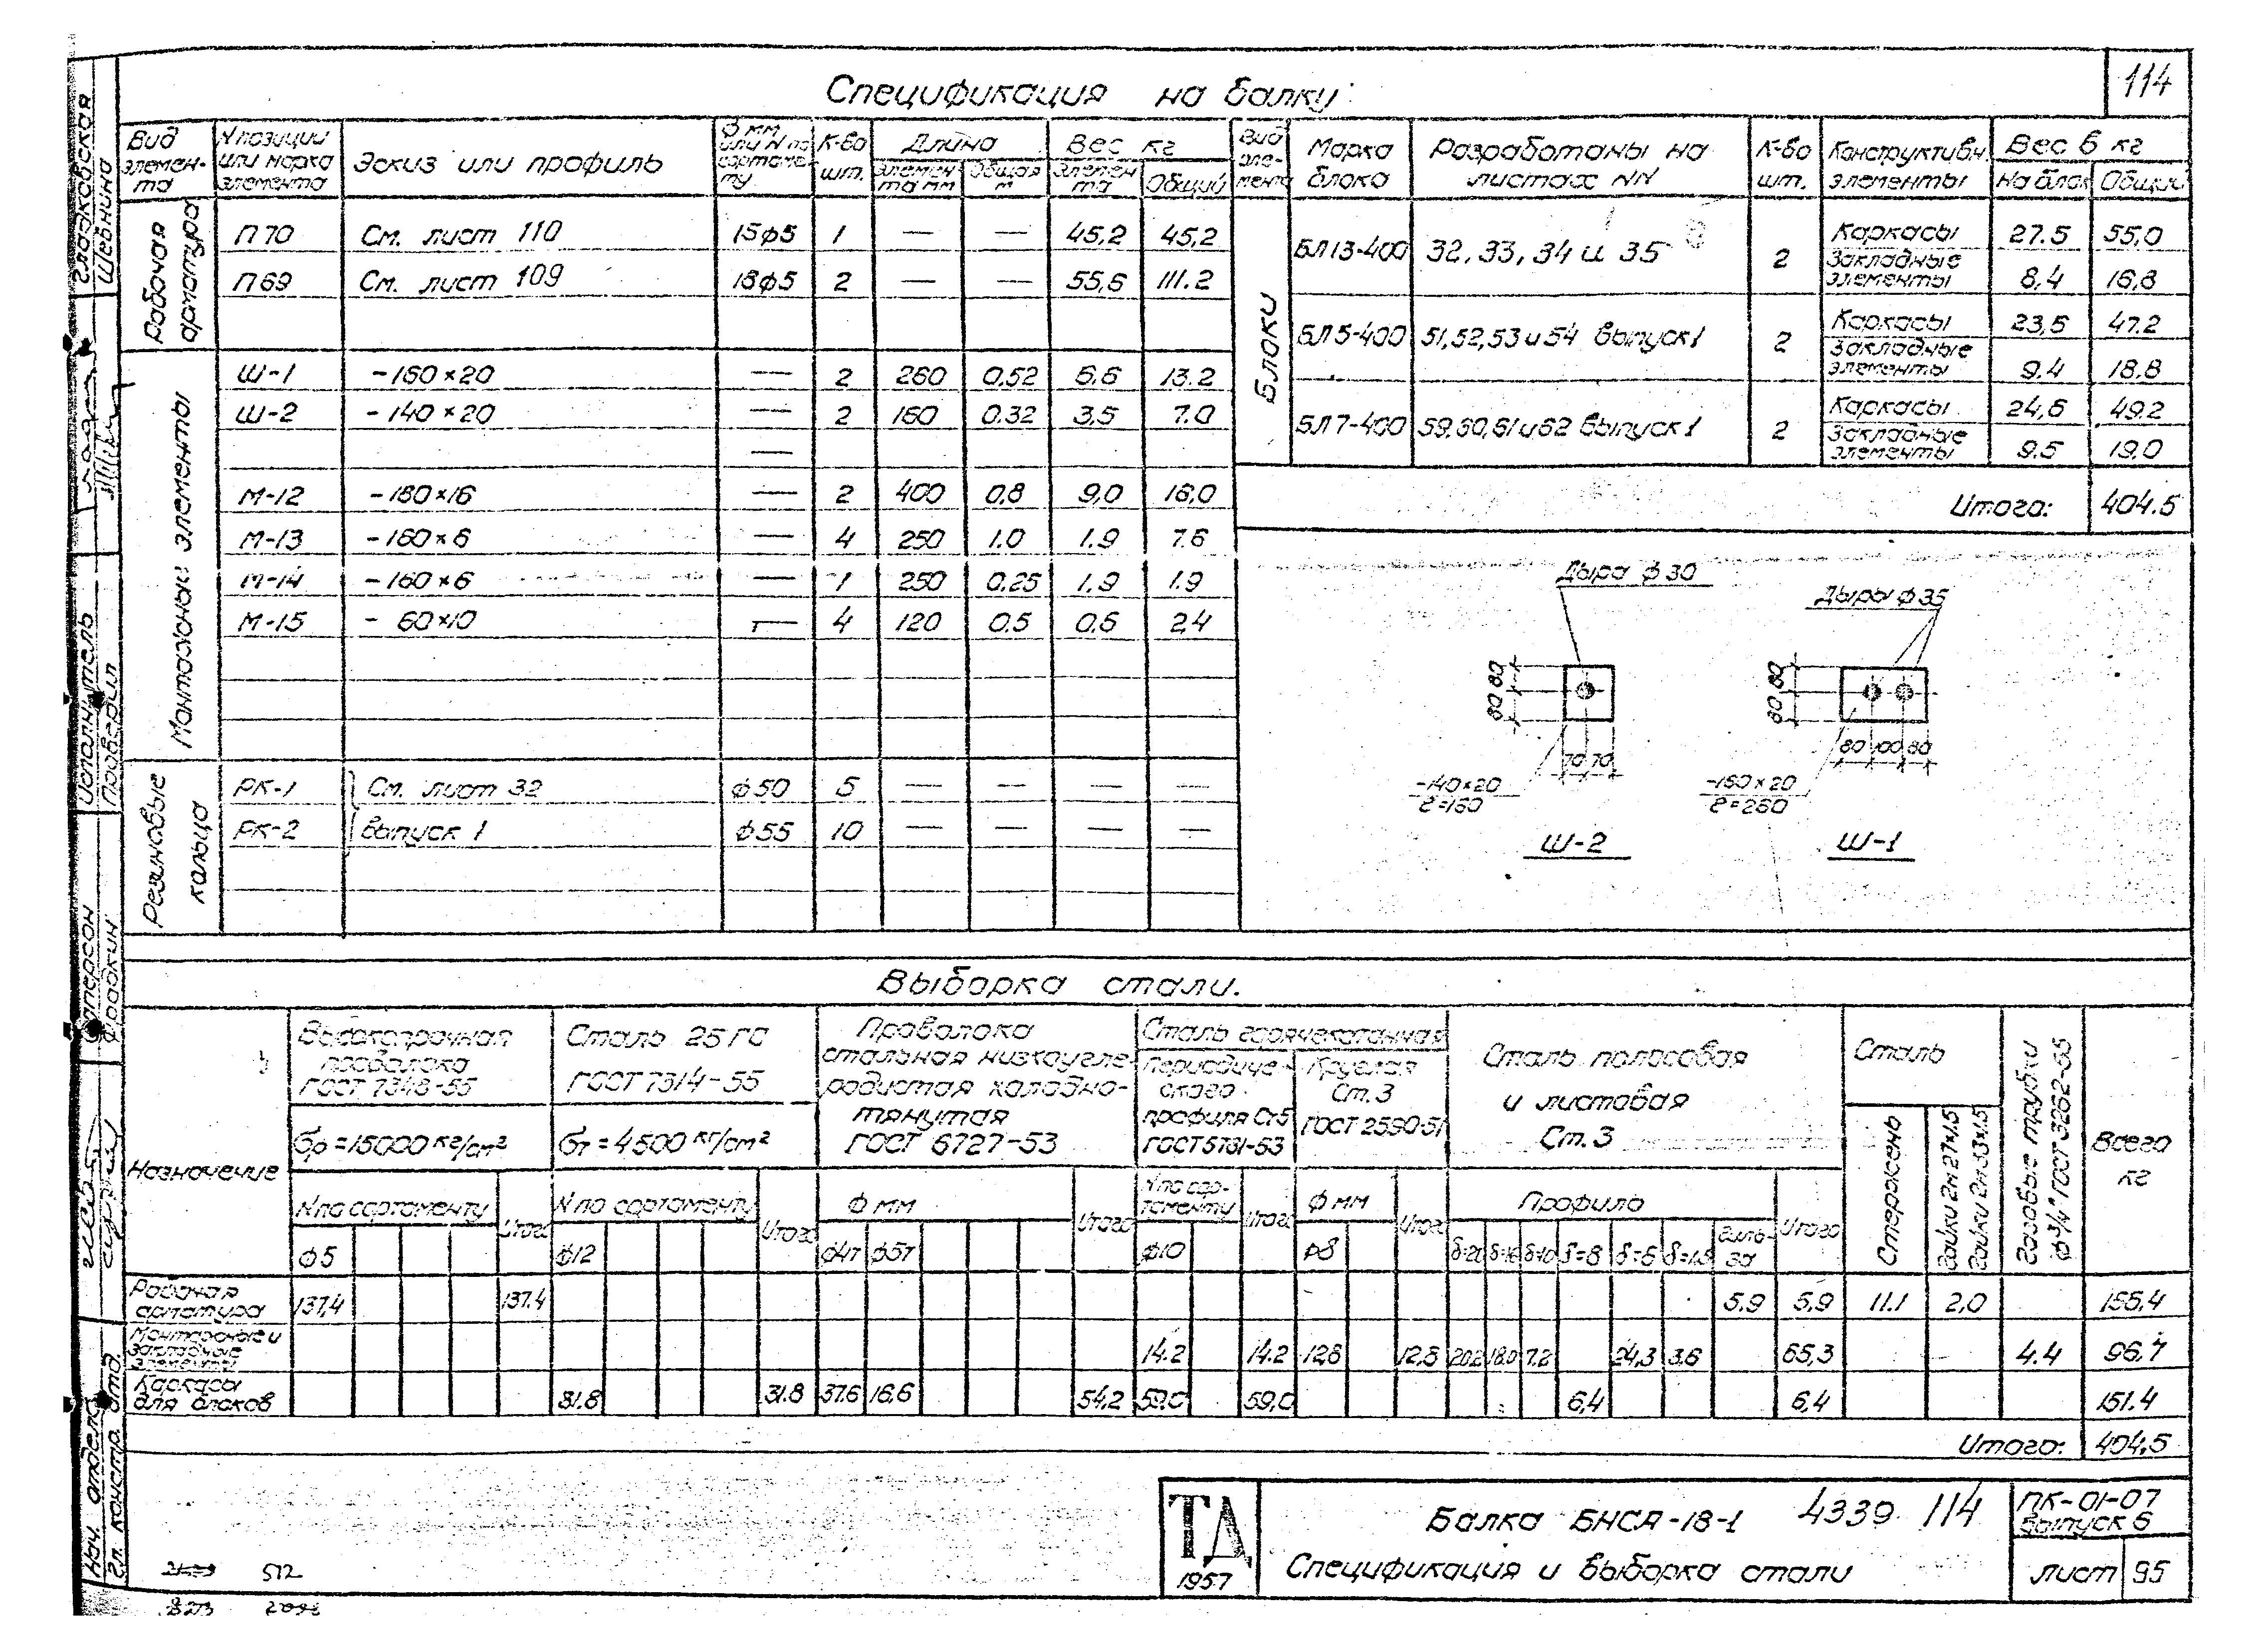 114
Спецификация на балку
Вид элемен-та | № позиции или марка элемента | Эскиз или профиль | ф мм или № по сортаменту | К-во шт. | Длина | Вес кг
Элемента мм | Общая м | Элемента | Общий
Рабочая арматура
П70 | См. лист 110 | 15ф5 | 1 | — | — | 45,2 | 45,2
П69 | См. лист 109 | 18ф5 | 2 | — | — | 55,6 | 111.2
Монтажные элементы
Ш-1 | -160×20 | — | 2 | 260 | 0,52 | 6.6 | 13.2
Ш-2 | -140×20 | — | 2 | 160 | 0.32 | 3,5 | 7.0
—
М-12 | -180×16 | — | 2 | 400 | 0,8 | 9,0 | 18,0
М-13 | -160×6 | — | 4 | 250 | 1.0 | 1.9 | 7.6
М-14 | -160×6 | — | 1 | 250 | 0.25 | 1.9 | 1.9
М-15 | - 60×10 | — | 4 | 120 | 0.5 | 0.6 | 2,4
Резиновые кольца
РК-1 | См. лист 32 | ф50 | 5 | — | — | — | —
РК-2 | выпуск 1 | ф55 | 10 | — | — | — | —
Вид эле-мента | Марка блока | Разработаны на листах NN | К-во шт. | Конструктивн. элементы | Вес в кг
На блок | Общий
Блоки
БЛ13-400 | 32, 33, 34 и 35 | 2 | Каркасы | 27.5 | 55,0
Закладные элементы | 8,4 | 16,8
БЛ5-400 | 51,52,53 и 54 выпуск 1 | 2 | Каркасы | 23,6 | 47.2
Закладные элементы | 9.4 | 18.8
БЛ7-400 | 59,60,61 и 62 выпуск 1 | 2 | Каркасы | 24,6 | 49.2
Закладные элементы | 9.5 | 19.0
Итого: | 404.5
Дыра ф30
Дыры ф35
80 80
80 80
70 70
80 100 80
-140×20
ℓ=160
-160×20
ℓ=260
Ш-2
Ш-1
Выборка стали.
Назначение
Высокопрочная проволока ГОСТ 7348-55
Сталь 25ГС ГОСТ 7314-55
Проволока стальная низкоугле-родистая холодно-тянутая ГОСТ 6727-53
Сталь горячекатанная
Периодиче-ского профиля Ст.5 ГОСТ 5781-53
Круглая Ст.3 ГОСТ 2590-51
Сталь полосовая и листовая Ст.3
Сталь
Стержень
Гайки 2м27×1.5
Гайки 2м33×1.5
Газовые трубки ф3/4" ГОСТ 3262-55
Всего кг
σр=15000 кг/см²
σт=4500 кг/см²
N по сортаменту | Итого | N по сортаменту | Итого | ф мм | Итого | N по сор-таменту | Итого | ф мм | Итого | Профили | Итого
ф5 | ф12 | ф4т | ф5т | ф10 | ф8 | δ=20 | δ=16 | δ=10 | δ=8 | δ=6 | δ=1,5 | Гиль-за
Рабочая арматура | 137,4 | 137.4 | 5.9 | 5,9 | 11.1 | 2,0 | 156.4
Монтажные и закладные элементы | 14.2 | 14.2 | 12,8 | 12,8 | 20.2 | 18.0 | 7.2 | 24,3 | 3,6 | 65,3 | 4.4 | 96,7
Каркасы для блоков | 31.8 | 31.8 | 37.6 | 16,6 | 54,2 | 59.0 | 59,0 | 6,4 | 6,4 | 151.4
Итого: | 404,5
ТД
1957
Балка БНСА-18-1 4339 114
Спецификация и выборка стали
ПК-01-07
выпуск 6
лист 95
Нач. отдела
Гл. констр. отд.
Фрадкин
Исполнитель
Проверил
Глазковская
Шевнина
512